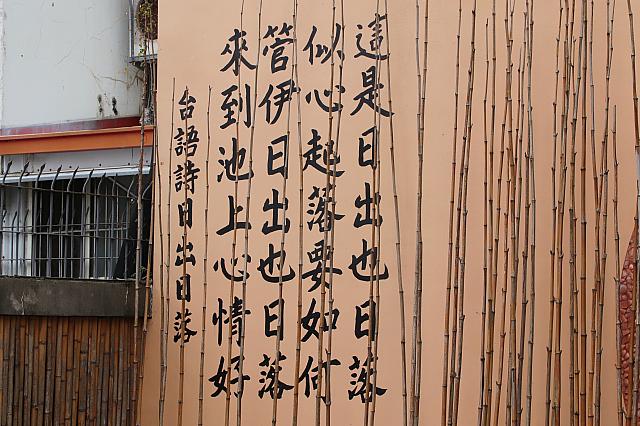 這是日出也日落
似心起落要如何
管伊日出也日落
來到池上心情好
台語詩日出日落